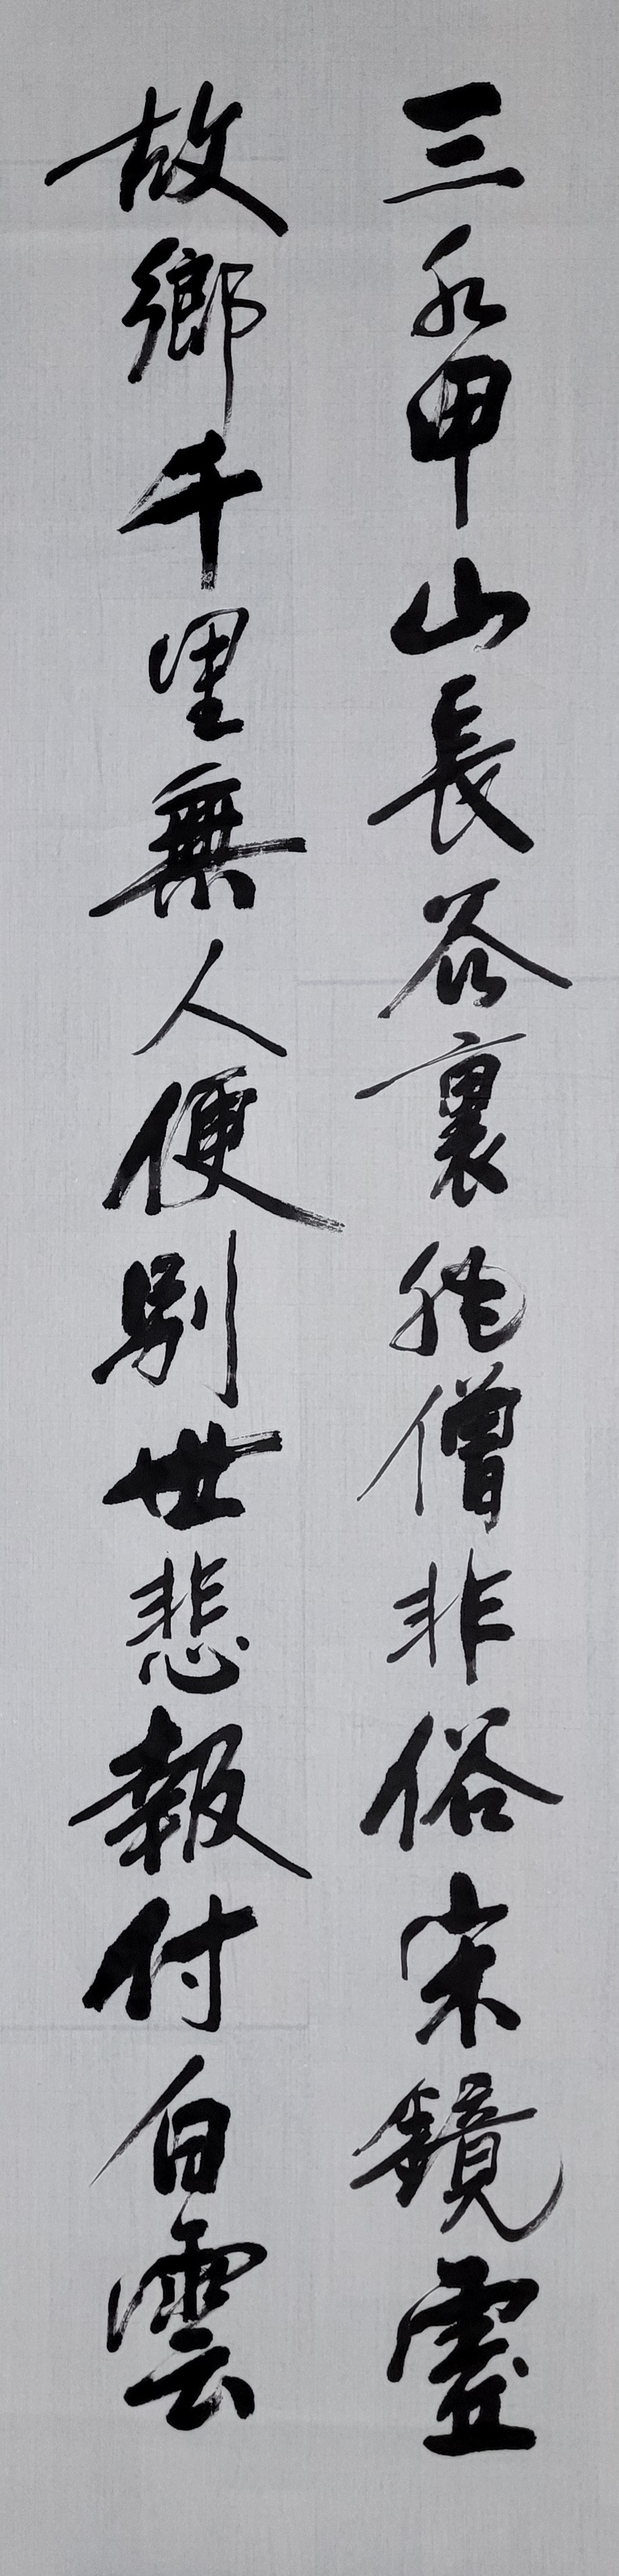 三水甲山長谷裏非僧非俗宋鏡虛
故鄉千里無人便別世悲報付白雲